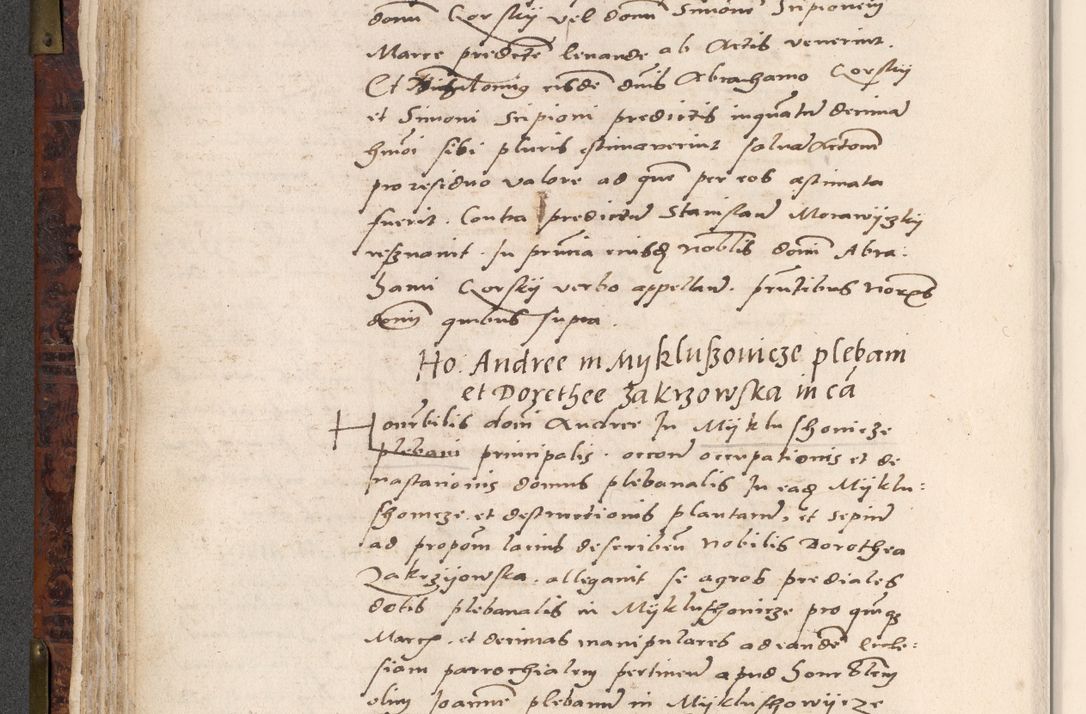 domi Gorskÿ vel domi Simoni Scipionem
Marce predcte levande ab Actis venerint.
Et eisdem dnis Abrahamo Gorskÿ
et Simoni Scipioni predictis inquantu decima
hmoi sibi pluris estimaverint salva Actom
pro residuo valore ad quem per eos estimata
fuerit. Contra predictu Stanislau Morawÿzkÿ
reservavit. In pruncia eiusdem Noblis domi Abra:
hami Gorskÿ verbo appellan. pruntibus Nor
domi quibus supra.
Ho. Andree in Myklušzovicze plebam
et Dorethee Zakrzowska in ca
Honrbilis domi Andree In Mÿklu shovicze
plebani principalis. occone occupationis et de
vastationis domus plebanalis In ead Mÿklu:
shovicze. et destructionis plantaru, et sepiu
ad propom lacius describen Nobilis Dorothea
Zakrzÿowska. allegavit se agros prediales
dotis plebanalis in Mÿklushovicze pro quinq
Marcis. et decimas manipulares ad eande Eccle:
siam parrochialem pertinen apud honrblem
olim Joannem plebanu in Mÿklushowÿcze